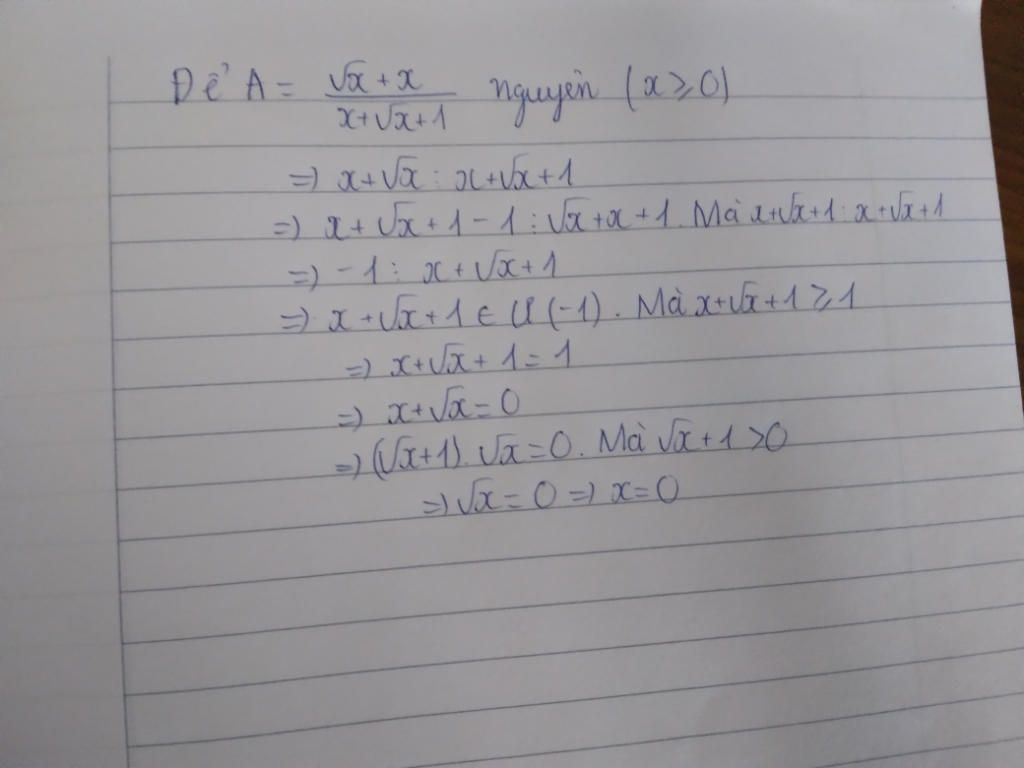 Để A = (√x + x)/(x+√x+1) nguyên (x ≥ 0)
=> x+√x ⋮ x+√x+1
=> x + √x + 1 - 1 ⋮ √x + x + 1. Mà x+√x+1 ⋮ x+√x+1
=> -1 ⋮ x+√x+1
=> x+√x+1 ∈ Ư(-1). Mà x+√x+1 ≥ 1
=> x+√x + 1 = 1
=> x+√x = 0
=> (√x+1). √x = 0. Mà √x+1 > 0
=> √x = 0 => x = 0